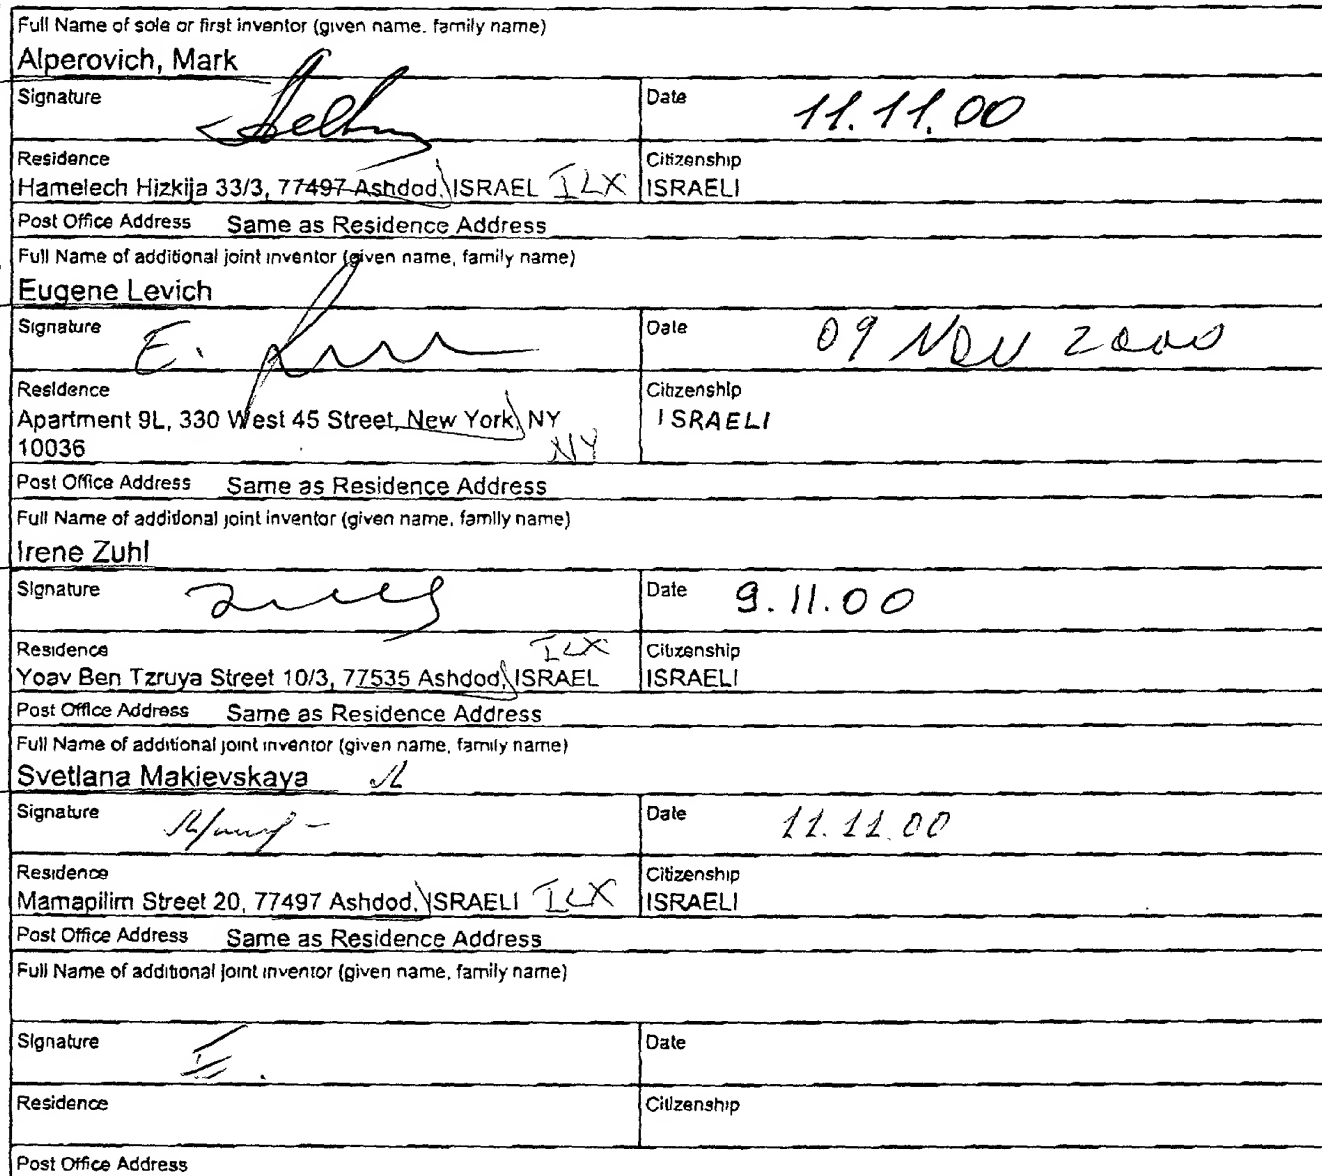 Full Name of sole or first inventor (given name, family name)
Alperovich, Mark
Signature
Date 11.11.00
Residence
Citizenship
Hamelech Hizkija 33/3, 77497 Ashdod, ISRAEL ILX
ISRAELI
Post Office Address Same as Residence Address
Full Name of additional joint inventor (given name, family name)
Eugene Levich
Signature E.
Date 09 NOV 2000
Residence
Citizenship
Apartment 9L, 330 West 45 Street, New York, NY
ISRAELI
10036 NY
Post Office Address Same as Residence Address
Full Name of additional joint inventor (given name, family name)
Irene Zuhl
Signature
Date 9.11.00
Residence ILX
Citizenship
Yoav Ben Tzruya Street 10/3, 77535 Ashdod, ISRAEL
ISRAELI
Post Office Address Same as Residence Address
Full Name of additional joint inventor (given name, family name)
Svetlana Makievskaya
Signature
Date 11.11.00
Residence
Citizenship
Mamapilim Street 20, 77497 Ashdod, ISRAELI ILX
ISRAELI
Post Office Address Same as Residence Address
Full Name of additional joint inventor (given name, family name)
Signature
Date
Residence
Citizenship
Post Office Address